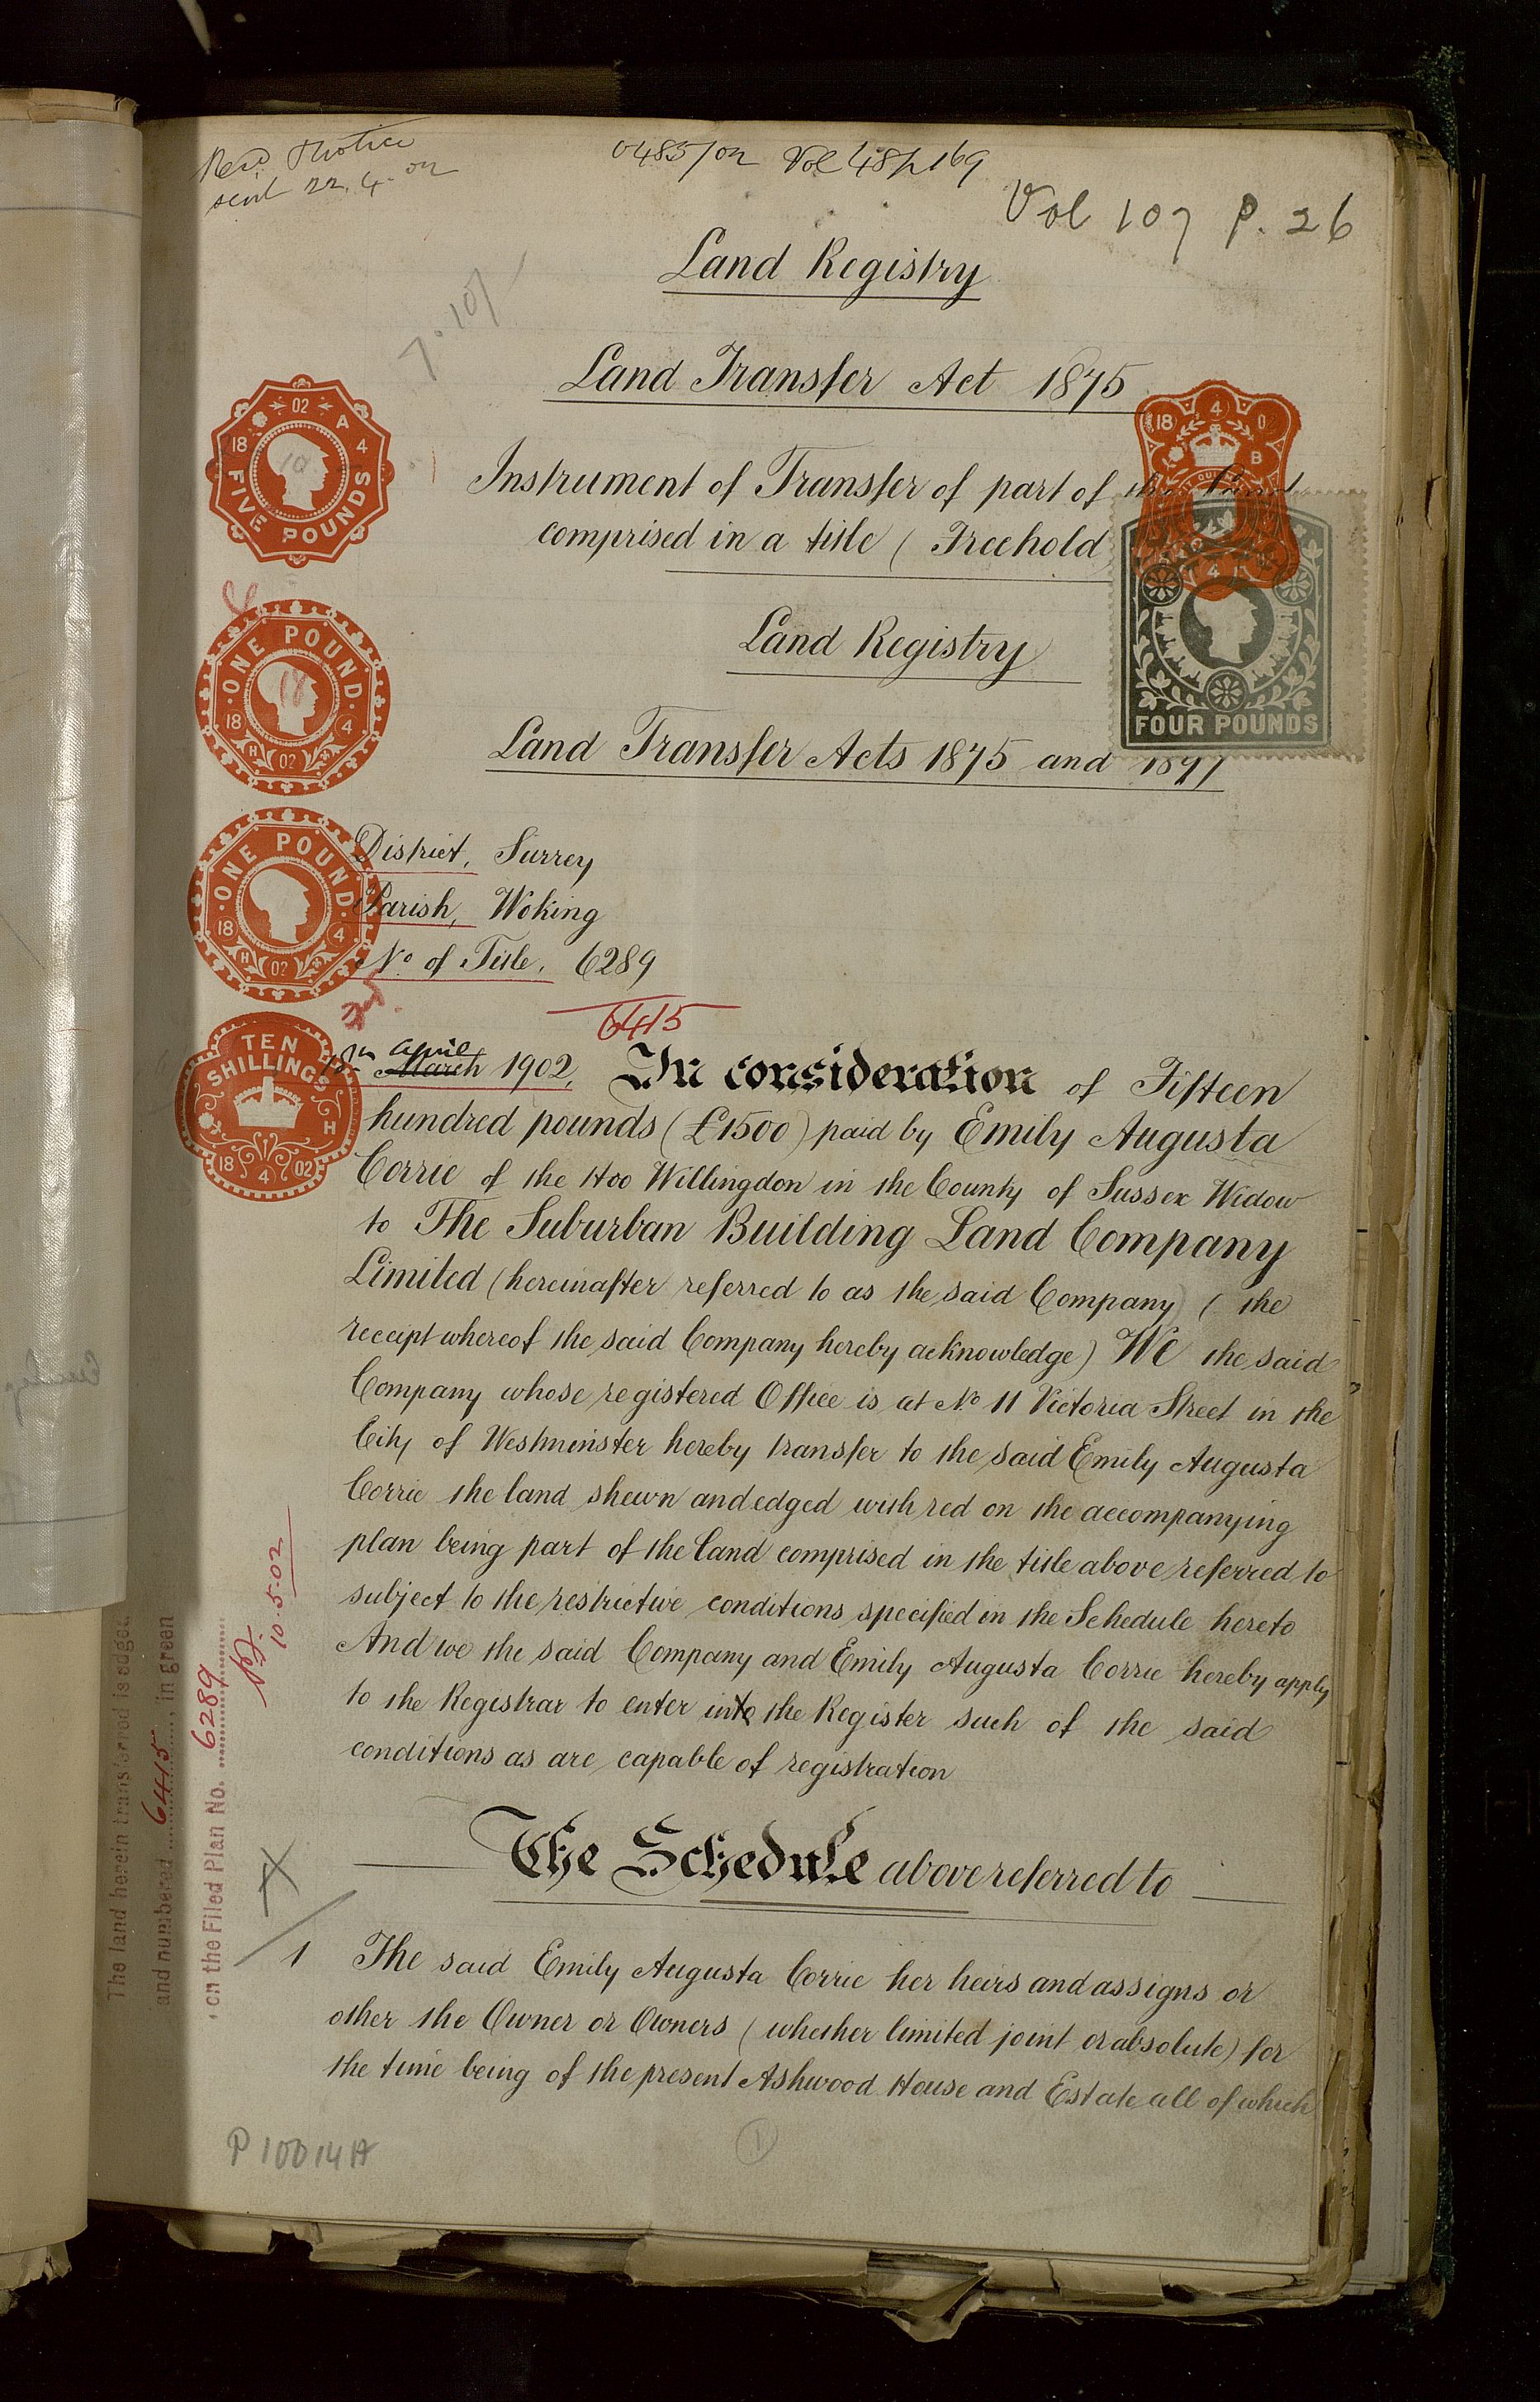 Recd Notice
sent 22.4.02
0485/02 Vol 48/p 169
Vol 107 P. 26
Land Registry
7.10/
Land Transfer Act 1875
Instrument of Transfer of part of the Land
comprised in a title (Freehold
Land Registry
Land Transfer Acts 1875 and 1897
02 A
18 4
FIVE POUNDS
18 4 02
B
FOUR POUNDS
ONE POUND
18 4
H 02
ONE POUND
18 4
H 02
District, Surrey
Parish, Woking
No. of Title, 6289
6415
TEN
SHILLINGS
H
18 4 02
18th April March 1902, In consideration of Fifteen
hundred pounds (£1500) paid by Emily Augusta
Corrie of the Hoo Willingdon in the County of Sussex Widow
to The Suburban Building Land Company
Limited (hereinafter referred to as the said Company) (the
receipt whereof the said Company hereby acknowledge) We the said
Company whose registered Office is at No 11 Victoria Street in the
City of Westminster hereby transfer to the said Emily Augusta
Corrie the land shewn and edged with red on the accompanying
plan being part of the land comprised in the title above referred to
subject to the restrictive conditions specified in the Schedule hereto
And we the said Company and Emily Augusta Corrie hereby apply
to the Registrar to enter into the Register such of the said
conditions as are capable of registration
The Schedule above referred to
1 The said Emily Augusta Corrie her heirs and assigns or
other the Owner or Owners (whether limited joint or absolute) for
the time being of the present Ashwood House and Estate all of which
The land herein transferred is edged
and numbered 6415, in green
on the Filed Plan No. 6289
10.5.02
P10014A
1